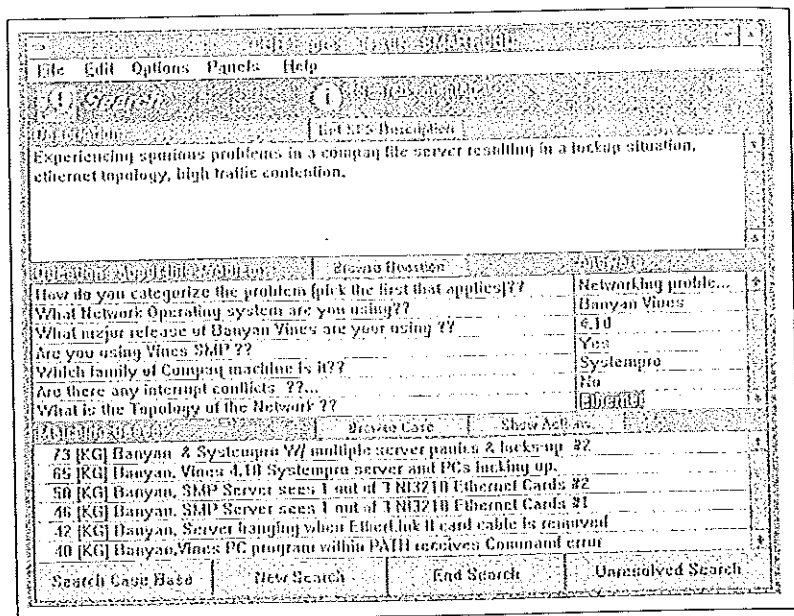 File Edit Options Panels Help
Search
Description
Experiencing spurious problems in a compaq file server resulting in a lockup situation,
ethernet topology, high traffic contention.
Browse Question
How do you categorize the problem (pick the first that applies)?? Networking proble...
What Network Operating system are you using?? Banyan Vines
What major release of Banyan Vines are your using ?? 4.10
Are you using Vines SMP ?? Yes
Which family of Compaq machine is it?? Systempro
Are there any interrupt conflicts ??... No
What is the Topology of the Network ?? Ethernet
Browse Case Show Action
73 [KG] Banyan & Systempro W/ multiple server panics & locks-up #2
65 [KG] Banyan, Vines 4.10 Systempro server and PCs locking up.
50 [KG] Banyan, SMP Server sees 1 out of 3 NI3210 Ethernet Cards #2
46 [KG] Banyan, SMP Server sees 1 out of 3 NI3210 Ethernet Cards #1
42 [KG] Banyan, Server hanging when EtherLink II card cable is removed
40 [KG] Banyan,Vines PC program within PATH receives Command error
Search Case Base New Search End Search Unresolved Search